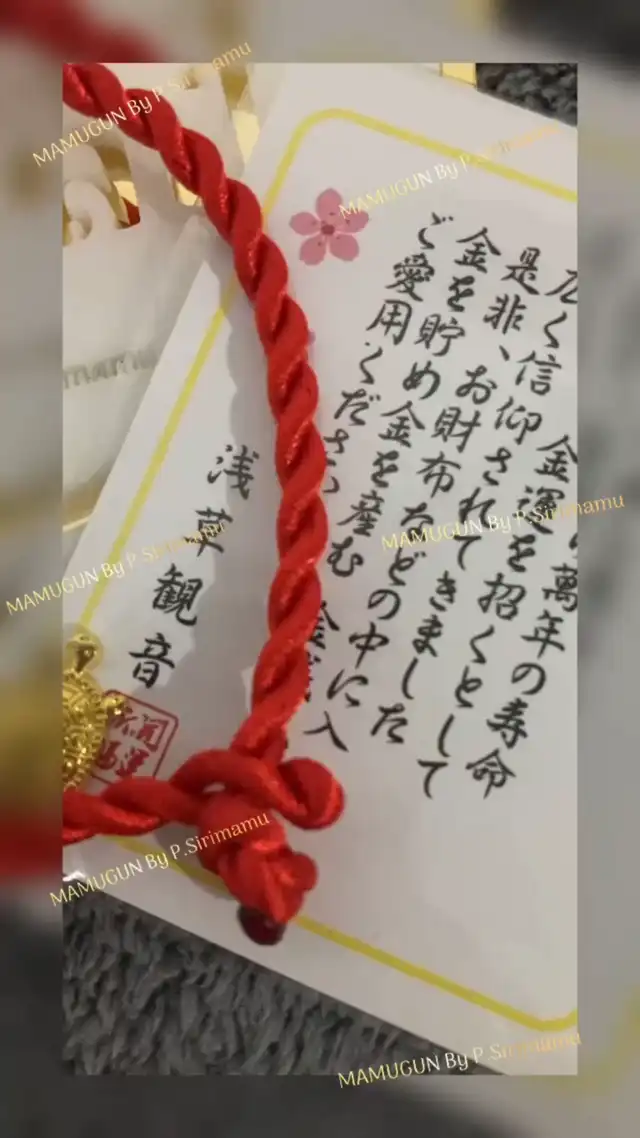 萬年の寿命
金運を招くとして
広く信仰されてきました
是非、お財布などの中に入
金を貯め金を産む 金
ご愛用ください
浅草観音
MAMUGUN By P.Sirimamu
MAMUGUN By P.Sirimamu
MAMUGUN By P.Sirimamu
MAMUGUN By P.Sirimamu
MAMUGUN By P.Sirimamu
MAMUGUN By P.Sirimamu